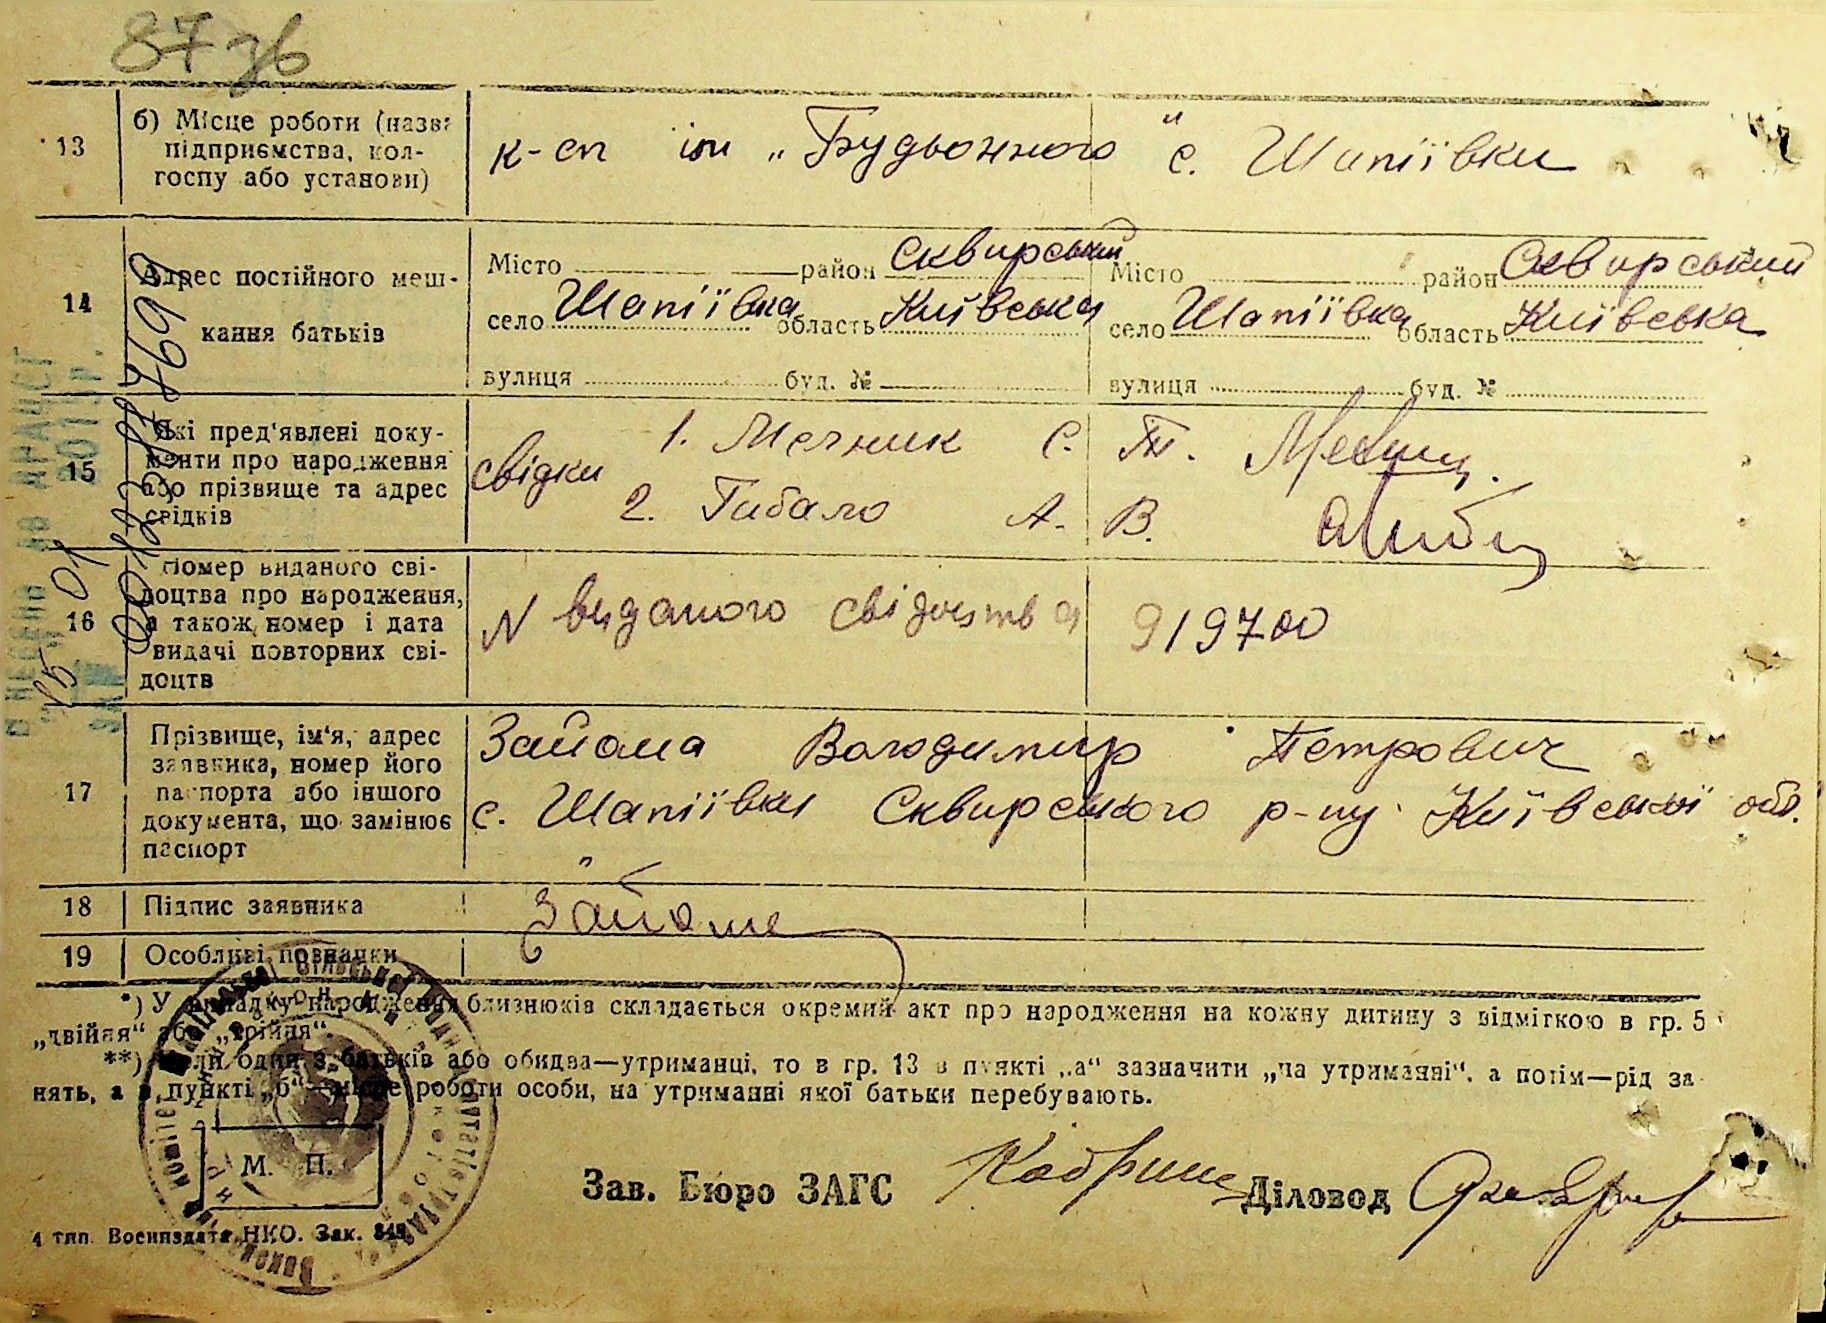 87 зв
13 б) Місце роботи (назва підприємства, кол-
госпу або установи)
к-сп ім „Будьонного“ с. Шапіївки
14 Адрес постійного меш-
кання батьків
Місто район Сквирський Місто район Сквирський
село Шапіївка область Київська село Шапіївка область Київська
вулиця буд. № вулиця буд. №
15 Які пред'явлені доку-
менти про народження
або прізвище та адрес
свідків
свідки 1. Мельник Є. Т.
2. Гибало А. В.
16 Номер виданого сві-
доцтва про народження,
а також номер і дата
видачі повторних сві-
доцтв
N виданого свідоцтва 919700
17 Прізвище, ім'я, адрес
заявника, номер його
паспорта або іншого
документа, що замінює
паспорт
Зайома Володимир Петрович
с. Шапіївки Сквирського р-ну Київської обл.
18 Підпис заявника
Зайома
19 Особливі позначки
*) У випадку народження близнюків складається окремий акт про народження на кожну дитину з відміткою в гр. 5
„двійня“ або „трійня“.
**) Коли один з батьків або обидва—утриманці, то в гр. 13 в пункті „а“ зазначити „на утриманні“, а потім—рід за
нять, а в пункті „б“—місце роботи особи, на утриманні якої батьки перебувають.
М. П.
Зав. Бюро ЗАГС Діловод
4 тип. Воениздата НКО. Зак. 848